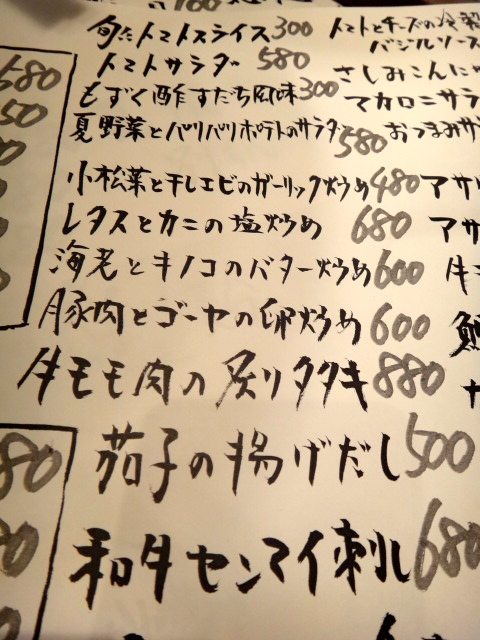 旬なトマトスライス300
トマトサラダ 580
もずく酢すだち風味300
夏野菜とパリパリポテトのサラダ580
小松菜と干しエビのガーリック炒め480
レタスとカニの塩炒め 680
海老とキノコのバター炒め600
豚肉とゴーヤの卵炒め600
牛モモ肉の炙りタタキ880
茄子の揚げだし500
和牛センマイ刺し680
トマトとチーズの冷製
バジルソース
さしみこんにゃ
マカロニサラ
おつまみサ
アサ
アサ
牛
580
50
80